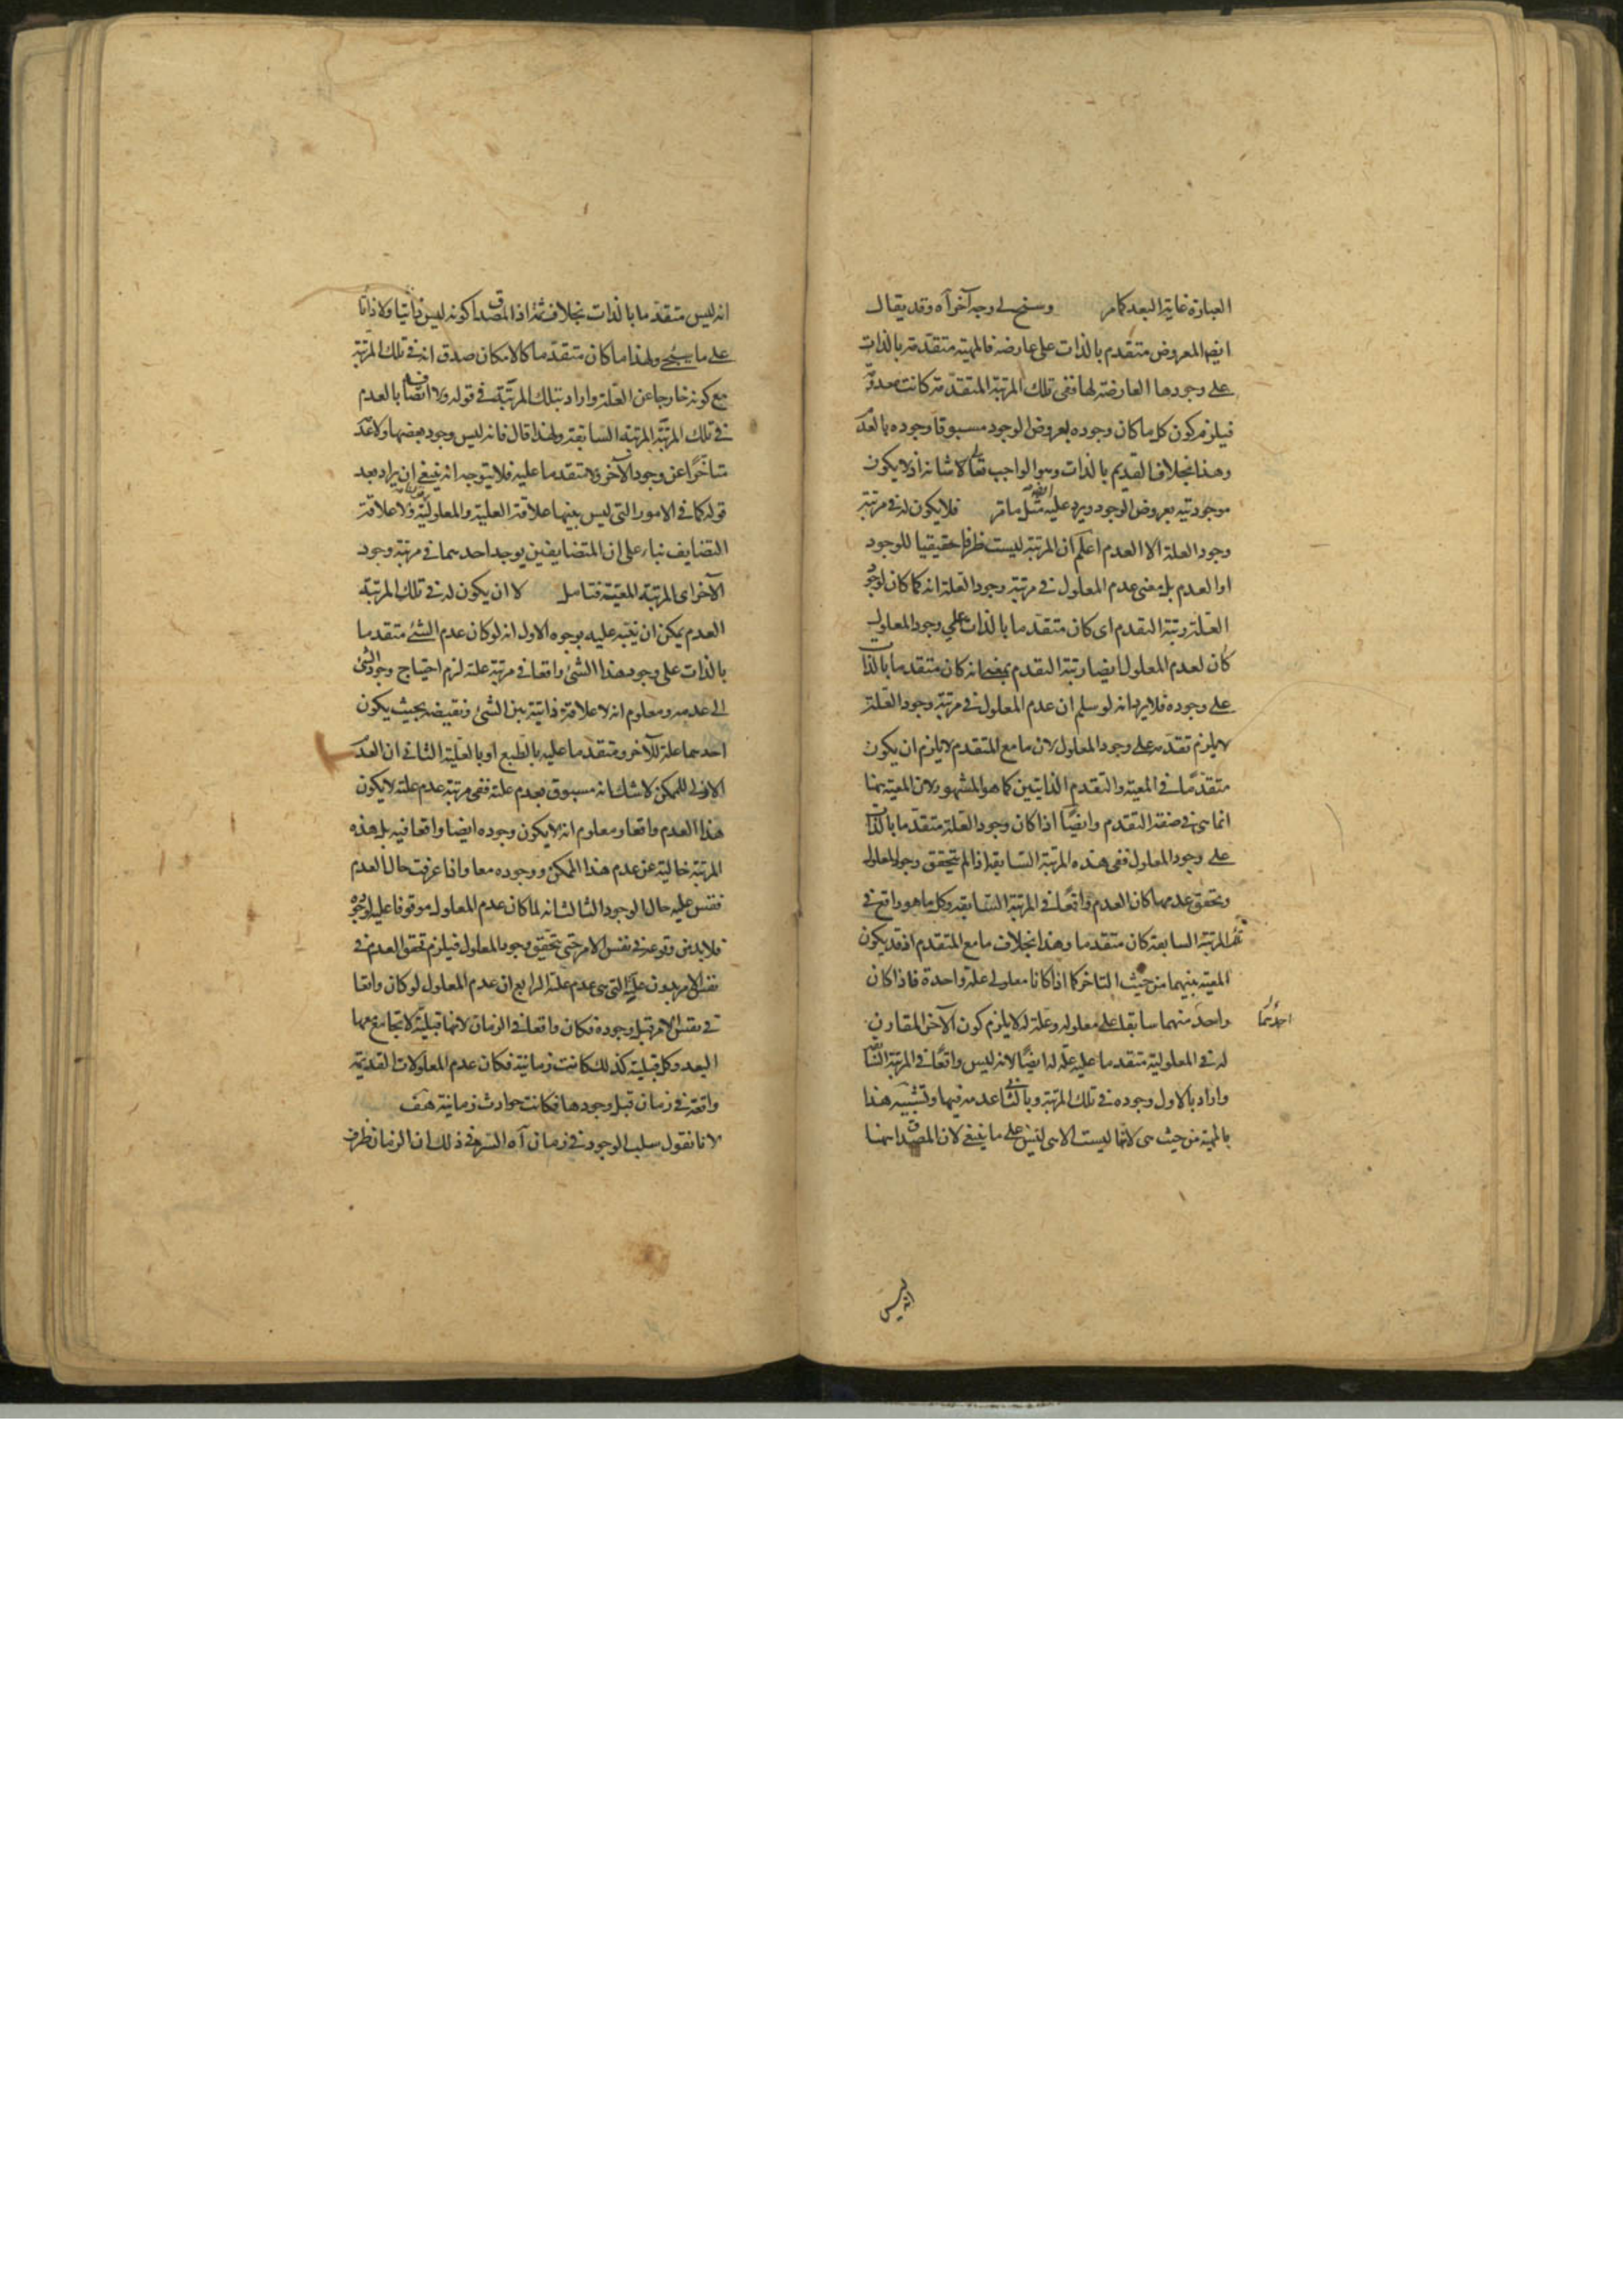 العبارة غاية البعد كما مر وسنح لى وجه آخر آه وقد يقال
ايضا المعروض متقدم بالذات على عارضه فالمهية متقدمة بالذات
على وجودها العارضة لها ففى تلك المرتبة المتقدمة كانت معدومة
فيلزم كون كل ما كان وجوده بعروض الوجود مسبوقا وجوده بالعدم
وهذا بخلاف القديم بالذات وهو الواجب تعالى شانه اذ لا يكون
موجوديته بعروض الوجود ويرد عليه مثل ما مر فلا يكون له فى مرتبة
وجود العلة الا العدم اعلم ان المرتبة ليست ظرفا حقيقيا للوجود
او العدم بل معنى عدم المعلول فى مرتبة وجود العلة انه كما كان لوجود
العلة رتبة التقدم اى كان متقدما بالذات على وجود المعلول
كان لعدم المعلول ايضا رتبة التقدم بمعنى انه كان متقدما بالذات
على وجوده فلا يرد انه لو سلم ان عدم المعلول فى مرتبة وجود العلة
لا يلزم تقدمه على وجود المعلول لان ما مع المتقدم لا يلزم ان يكون
متقدما فى المعية والتقدم الذاتيين كما هو المشهور لان المعية هنا
انما هى فى صفة التقدم وايضا اذا كان وجود العلة متقدما بالذات
على وجود المعلول ففى هذه المرتبة السابقة اذا لم يتحقق وجود المعلول
وتحقق عدمها كان العدم واقعا فى المرتبة السابقة وكل ما هو واقع فى
المرتبة السابعة كان متقدما وهذا بخلاف ما مع المتقدم اذ قد يكون
المعية بينهما من حيث التاخر كما اذا كانا معلولى علة واحدة فاذا كان
احدهما
واحد منهما سابقا على معلوله وعلة له لا يلزم كون الآخر المقارن
له فى المعلولية متقدما عليه علة له ايضا لانه ليس واقعا فى المرتبة
واراد بالاول وجوده فى تلك المرتبة وبالثانى عدمه فيها وتشبيه هذا
بالمهية من حيث هى لانها ليست الا هى ليس على ما ينبغى لان المصداق هنا
انه ليس
انه ليس متقدما بالذات بخلاف ثمة اذ المصداق كونه ليس ذاتيا ولا ذاتا
على ما سيجئ ولهذا ما كان متقدما كالامكان صدق انه فى تلك المرتبة
مع كونه خارجا عن العلة واراد بتلك المرتبة فى قوله ولا اتصافه بالعدم
فى تلك المرتبة المرتبة السابقة ولهذا قال فانه ليس وجود بعضها ولا عدمه
متاخرا عن وجود الآخر ولا متقدما عليه فلا يتوجه انه ينبغى ان يراد بعد
قوله كما فى الامور التى ليس بينها علاقة العلية والمعلولية ولا علاقة
التضايف بناء على ان المتضايفين يوجد احدهما فى مرتبة وجود
الآخر اى المرتبة المعينة فتامل لا ان يكون له فى تلك المرتبة
العدم يمكن ان ينبه عليه بوجوه الاول انه لو كان عدم الشئ متقدما
بالذات على وجود هذا الشئ واقعا فى مرتبة علة لزم احتياج وجود الشئ
الى عدمه ومعلوم انه لا علاقة ذاتية بين الشئ ونقيضه بحيث يكون
احدهما علة للآخر ومتقدما عليه بالطبع او بالعلية الثانى ان العدم
الازلى للممكن لا شك انه مسبوق بعدم علته ففى مرتبة عدم علته لا يكون
هذا العدم واقعا ومعلوم انه لا يكون وجوده ايضا واقعا فيه بل هذه
المرتبة خالية عن عدم هذا الممكن ووجوده معا واذا عرفت حال العدم
فقس عليه حال الوجود الثالث انه لما كان عدم المعلول موقوفا عليه لوجوده
فلا بد من وقوعه فى نفس الامر حتى يتحقق وجود المعلول فيلزم تحقق العدم فى
نفس الامر بدون علته التى هى عدم علته الرابع ان عدم المعلول لو كان واقعا
فى نفس الامر قبل وجوده فكان واقعا فى الزمان لانها قبلية لا تجامع معها
البعد وكل قبلية كذلك كانت زمانية فكان عدم المعلولات القديمة
واقعة فى زمان قبل وجودها فكانت حوادث زمانية هف
لانا نقول سلب الوجود فى زمان آه السر فى ذلك ان الزمان ظرف